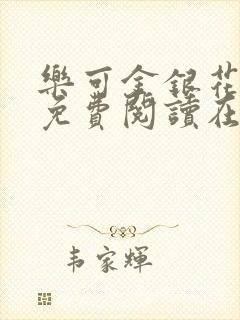 樂可金銀花
免費閱讀在
韦家輝